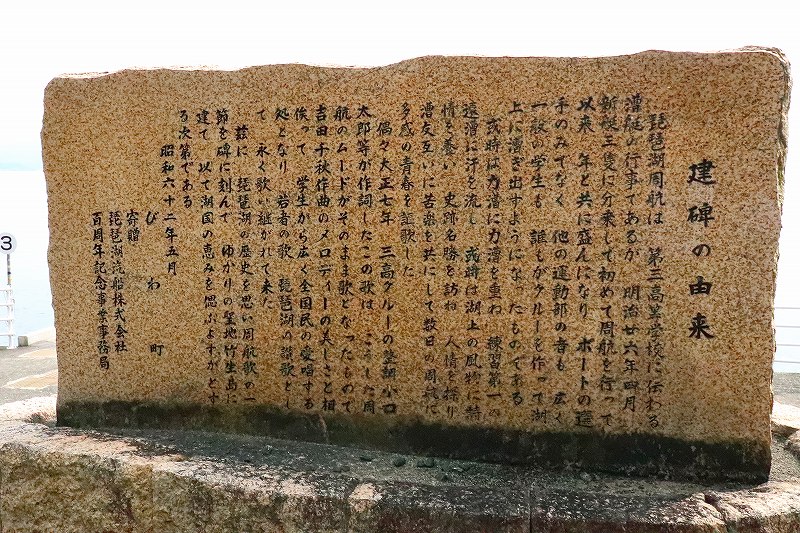 建碑の由来
琵琶湖周航は 第三高等学校に伝わる
漕艇の行事であるが 明治廿六年四月
新艇三隻に分乗して初めて周航を行って
以来 年と共に盛んになり ボートの選
手のみでなく 他の運動部の者も 広く
一般の学生も 誰もがクルーを作って湖
上に漕ぎ出すようになったものである
或時は力漕に力漕を重ね 練習第一の
遠漕に汗を流し 或時は湖上の風物に詩
情を養い 史跡名勝を訪ね 人情を探り
漕友互いに苦楽を共にして数日の周航に
多感の青春を謳歌した
偶々大正七年 三高クルーの整調小口
太郎等が作詞したこの歌は こうした周
航のムードがそのまま歌となったもので
吉田千秋作曲のメロディーの美しさと相
俟って 学生から広く全国民の愛唱する
処となり 若者の歌 琵琶湖の讃歌とし
て 永く歌い継がれて来た
茲に 琵琶湖の歴史を思い周航歌の一
節を碑に刻んで ゆかりの聖地竹生島に
建て 以て湖国の恵みを偲ぶよすがとす
る次第である
昭和六十二年五月
びわ町
寄贈
琵琶湖汽船株式会社
百周年記念事業事務局
3